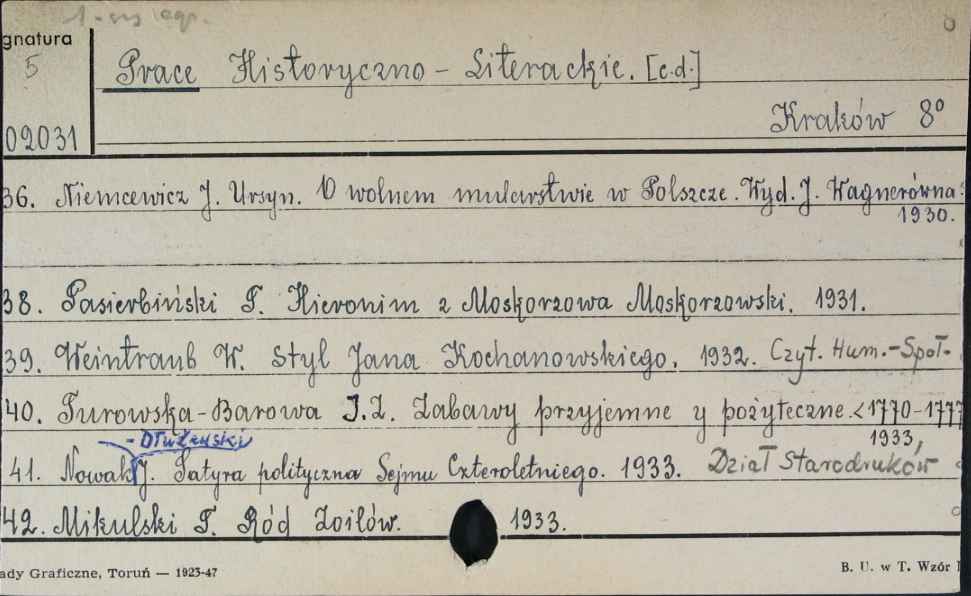 1-wy egz.
gnatura
5
Prace Historyczno-Literackie. [c.d.]
Kraków 8°
02031
36. Niemcewicz J. Ursyn. O wolnem mularstwie w Polszcze. Wyd. J. Wagnerówna.
1930.
38. Pasierbiński T. Hieronim z Moskorzowa Moskorzowski. 1931.
39. Weintraub W. Styl Jana Kochanowskiego. 1932. Czyt. Hum.-Społ.
40. Turowska-Barowa I. Z. Zabawy przyjemne y pożyteczne. <1770-1777
1933,
- Dłużewski
41. Nowak J. Satyra polityczna Sejmu Czteroletniego. 1933. Dział Starodruków
42. Mikulski T. Ród Zoilów. 1933.
ady Graficzne, Toruń — 1923-47
B. U. w T. Wzór